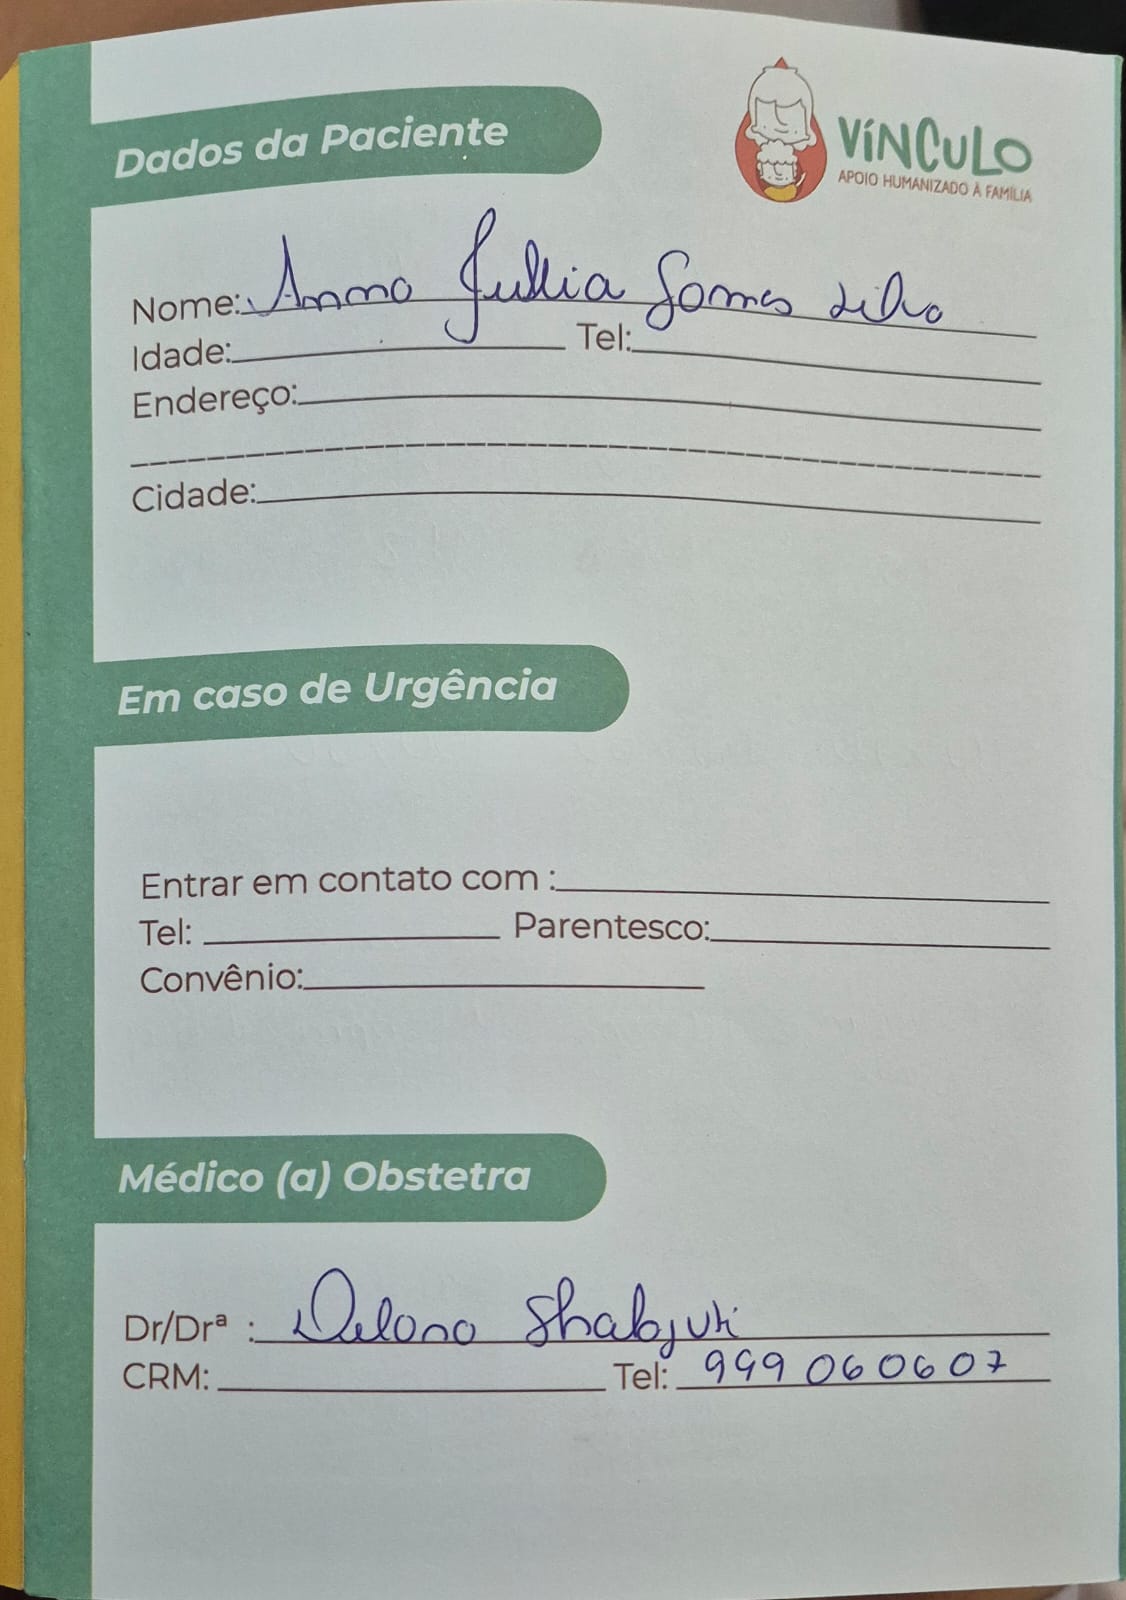 Dados da Paciente
VÍNCULO
APOIO HUMANIZADO À FAMÍLIA
Nome: Anna Jullia Gomes Silva
Idade: Tel:
Endereço:
Cidade:
Em caso de Urgência
Entrar em contato com :
Tel: Parentesco:
Convênio:
Médico (a) Obstetra
Dr/Drª :
CRM: Tel: 999060607